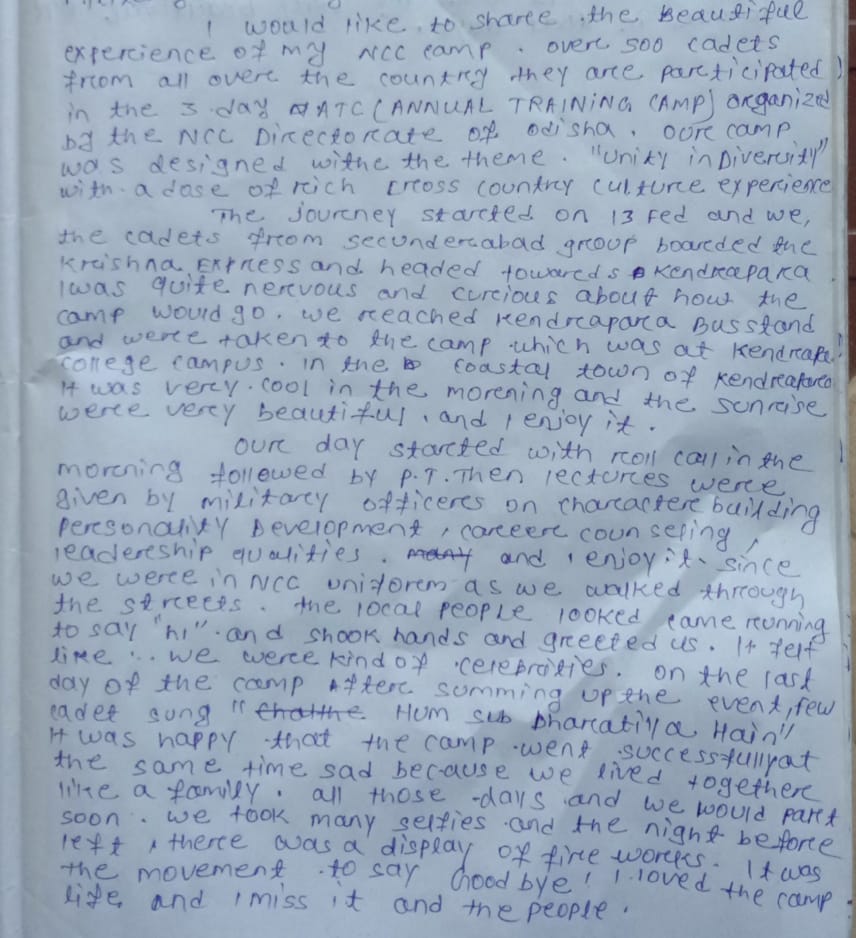 I would like to share the Beautiful
experience of my NCC camp. over 500 cadets
from all over the country they are participated
in the 3 day ATC (ANNUAL TRAINING CAMP) organized
by the NCC Directorate of odisha. our camp
was designed withe the theme. "unity in Divercity"
with a dose of rich cross country culture experience
The journey started on 13 Fed and we,
the cadets from secunderabad group boarded the
Krishna Express and headed towards Kendrapara.
I was quite nervous and curious about how the
camp would go. we reached Kendrapara Busstand
and were taken to the camp which was at Kendrapa
college campus. in the coastal town of Kendrapara
It was very cool in the morening and the sunrise
were very beautiful, and I enjoy it.
our day started with roll call in the
morning followed by P.T. Then lectures were
given by military officers on character building
personality Development, career counseling,
leadership qualities. many and I enjoy it. since
we were in NCC uniform as we walked through
the streets. the local people looked came running
to say "hi" and shook hands and greeted us. It felt
like.. we were kind of celebraties. on the last
day of the camp After summing up the event, few
cadet sung " Hum sub bharatiya Hain"
It was happy that the camp went successfully at
the same time sad because we lived together
like a family. all those days and we would part
soon. we took many selfies and the night before
left, there was a display of fire works. It was
the movement to say Good bye! I loved the camp
life and I miss it and the people.